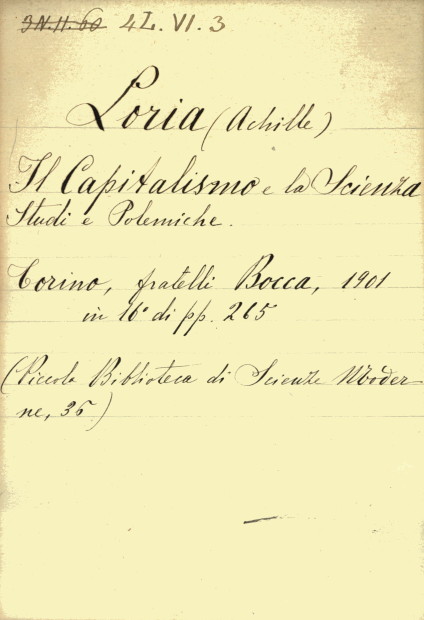 3N.11.60 4L.VI.3
Loria (Achille)
Il Capitalismo e la Scienza
Studi e Polemiche.
Torino, fratelli Bocca, 1901
in 16° di pp. 265
(Piccola Biblioteca di Scienze Moder
ne, 36)